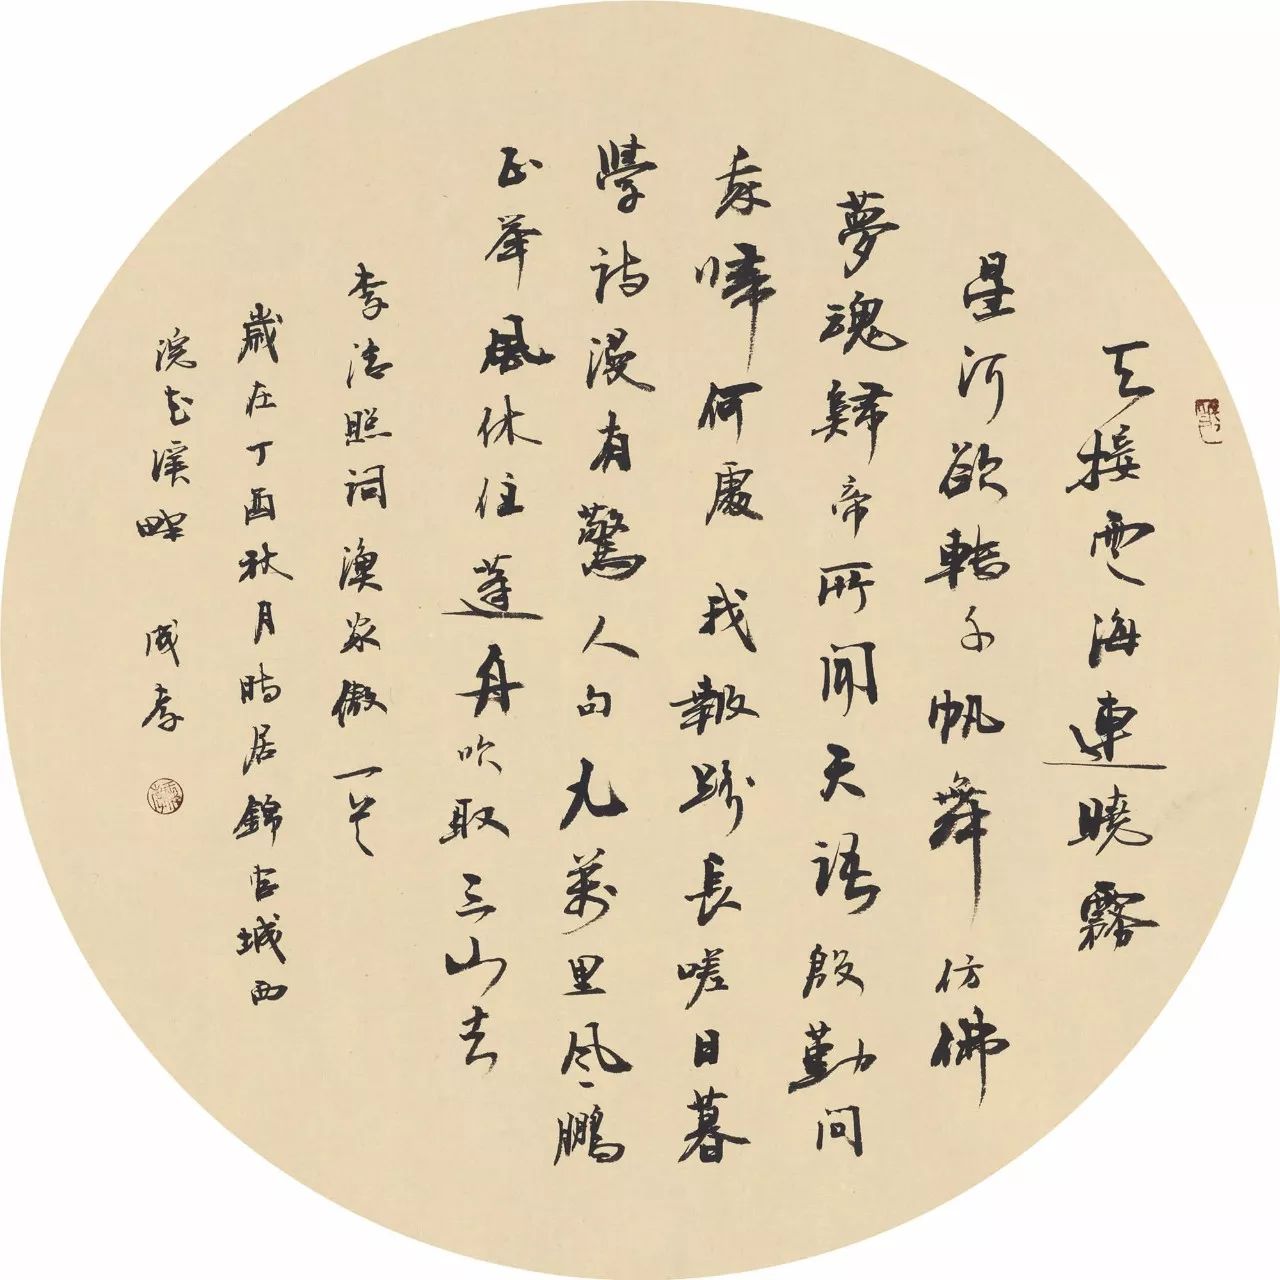 天接雲海連曉霧
星河欲轉千帆舞仿佛
夢魂歸帝所聞天語殷勤問
我歸何處我報路長嗟日暮
學詩漫有驚人句九萬里風鵬
正舉風休住蓬舟吹取三山去
李清照詞漁家傲一首
歲在丁酉秋月時居錦官城西
浣花溪畔 成孝